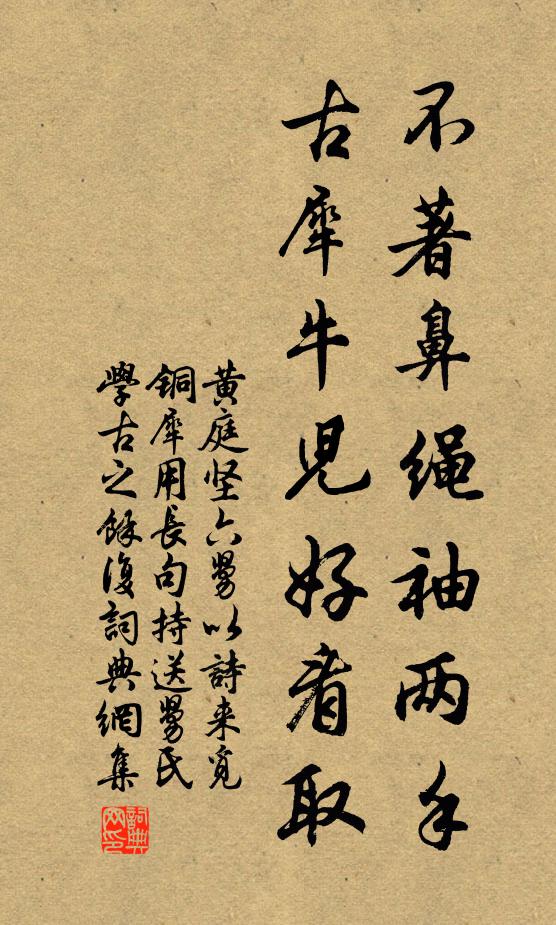 不著鼻绳袖两手
古犀牛児好看取
黄庭坚六舅以詩来觅
铜犀用長句持送舅氏
學古之餘復詞典網集
詞典网印